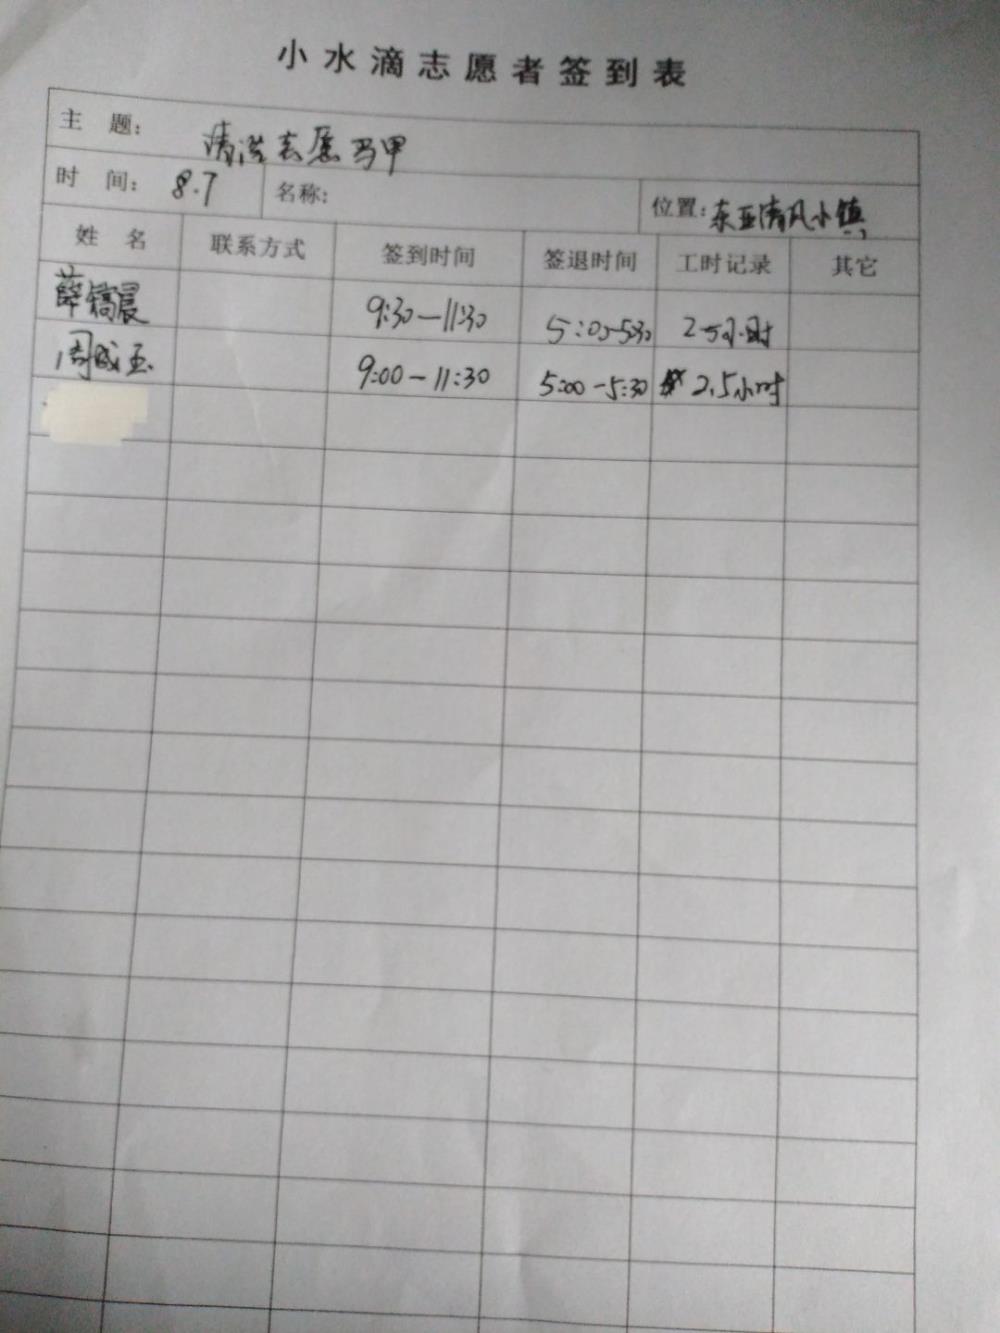 小水滴志愿者签到表
主 题: 清洗志愿马甲
时 间: 8.7 名称: 位置: 东亚清风小镇
姓 名 联系方式 签到时间 签退时间 工时记录 其它
薛镐晨 9:30—11:30 5:00-5:30 2.5小时
周成玉 9:00—11:30 5:00-5:30 2.5小时